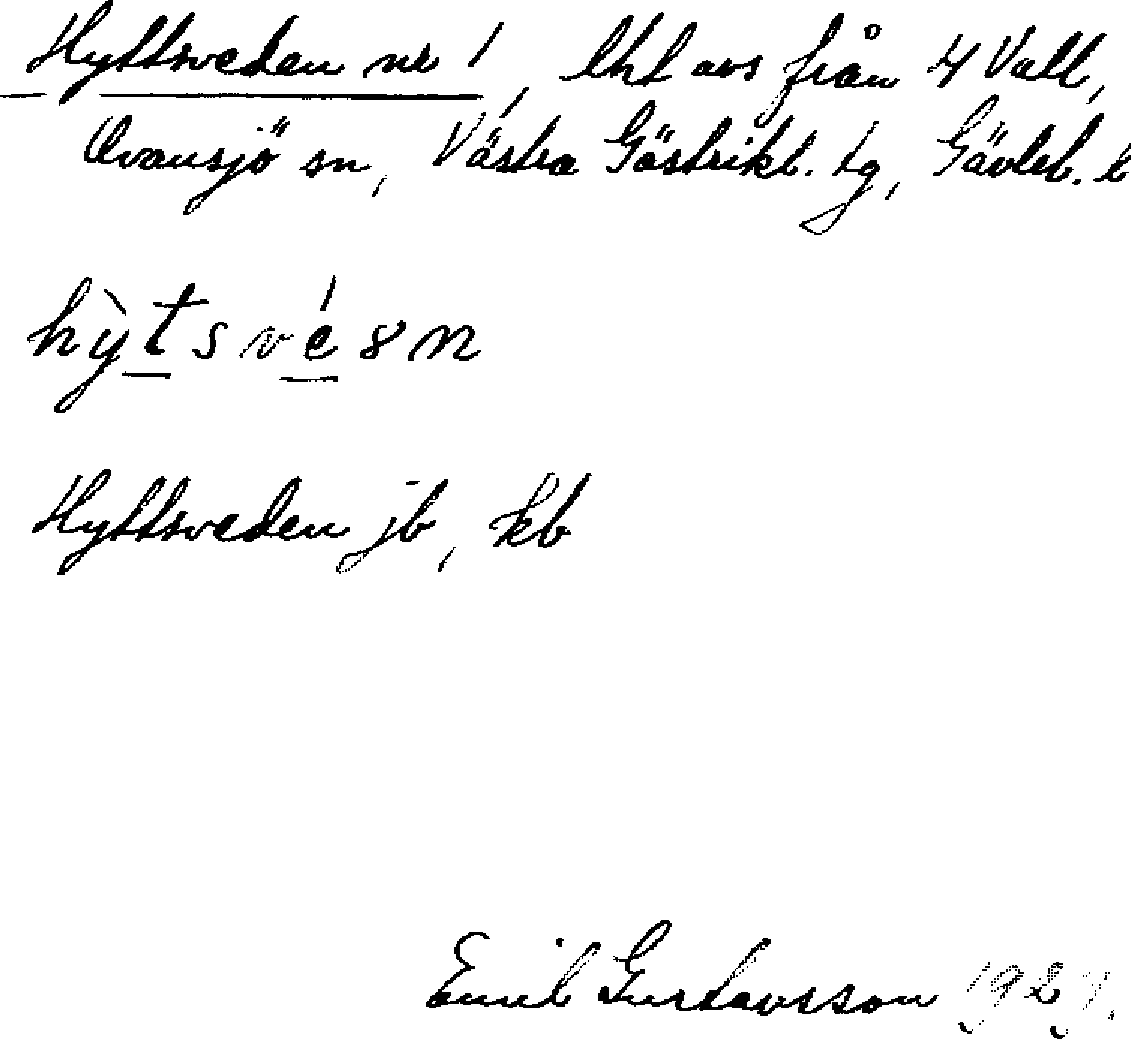 Hyttsveden nr 1, lht avs från 4 Vall,
Ovansjö sn, Västra Gästrikl. tg, Gävleb. l
hỳtsvésn
Hyttsveden jb, kb
Emil Gustavsson 1927.